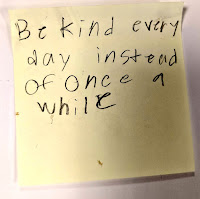 Be kind every
day instead
of once a
while